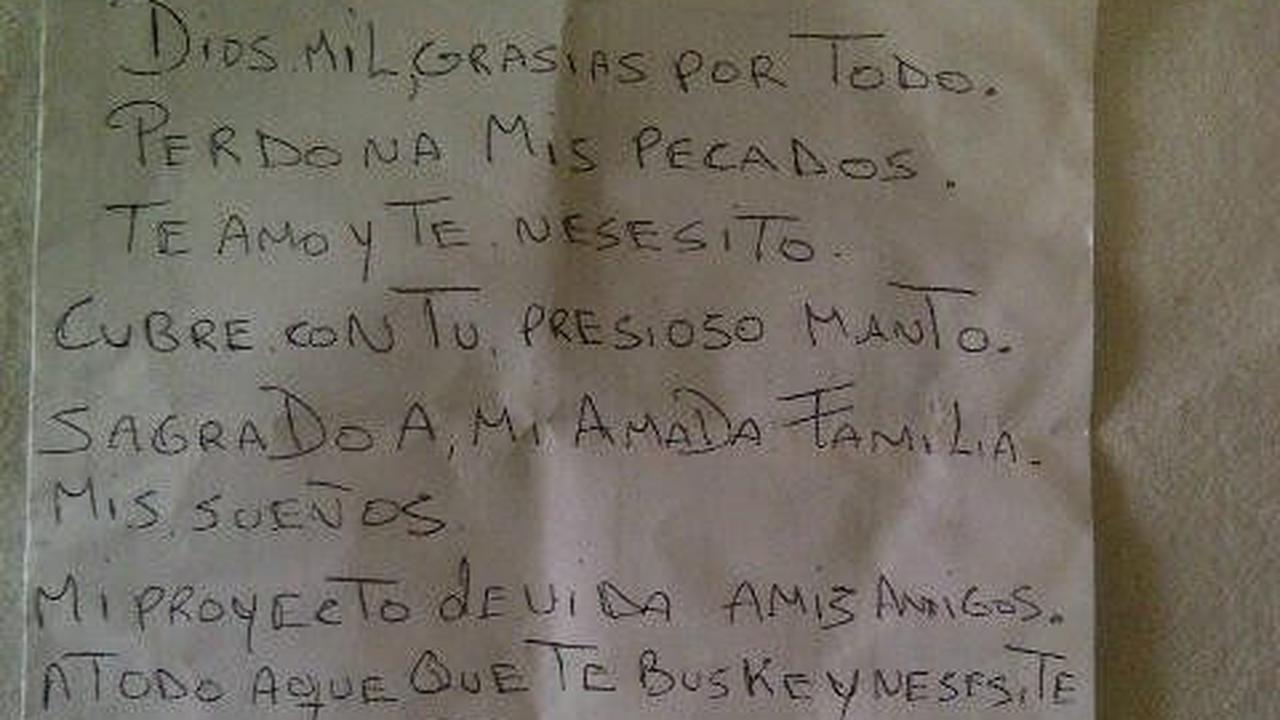 DIOS. MIL, GRASIAS POR TODO.
PERDONA MIS PECADOS.
TE AMO Y TE. NESESITO.
CUBRE. CON TU. PRESIOSO MANTO.
SAGRADO A, MI AMADA FAMILIA.
MIS. SUEÑOS
MI PROYECTO dE VIDA AMIS AMIGOS.
ATODO AQUE QUE TE BUSKE Y NESES,TE